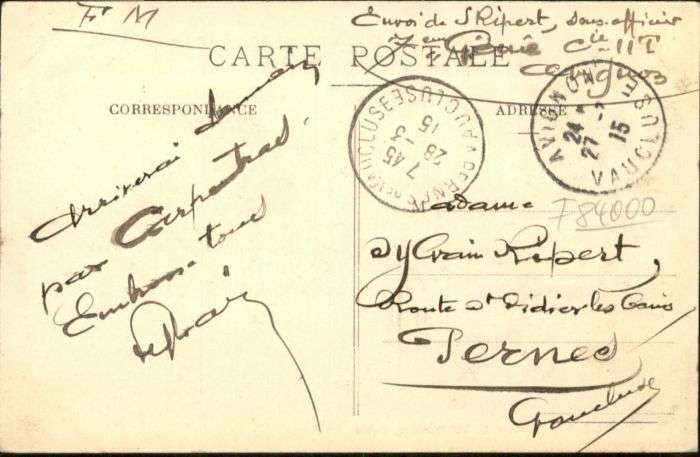 F M
Envoi de S Ripert, sous-officier
7eme Génie Cie 11T
CARTE POSTALE
CORRESPONDANCE
ADRESSE
Arriverai
par Carpentras.
Embrasse tous
PERNES VAUCLUSE
7 45
28 -3
15
AVIGNON VAUCLUSE
24
27 -
15
F84000
Madame
Sylvain Ripert,
Route St Didier les Bains
Pernes
Vaucluse